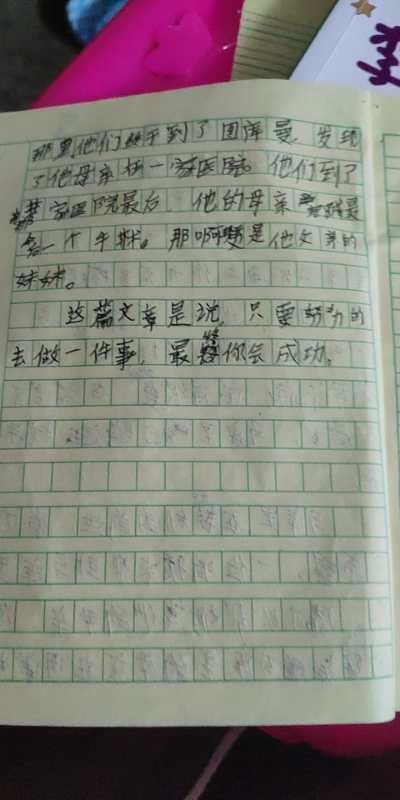 那里他们终于到了图库曼，发现
了他母亲在一家医院。他们到了
家医院最后，他的母亲
一个手术。那啊是他父亲的
妹妹。
这篇文章是说，只要努力的
去做一件事，最终你会成功。